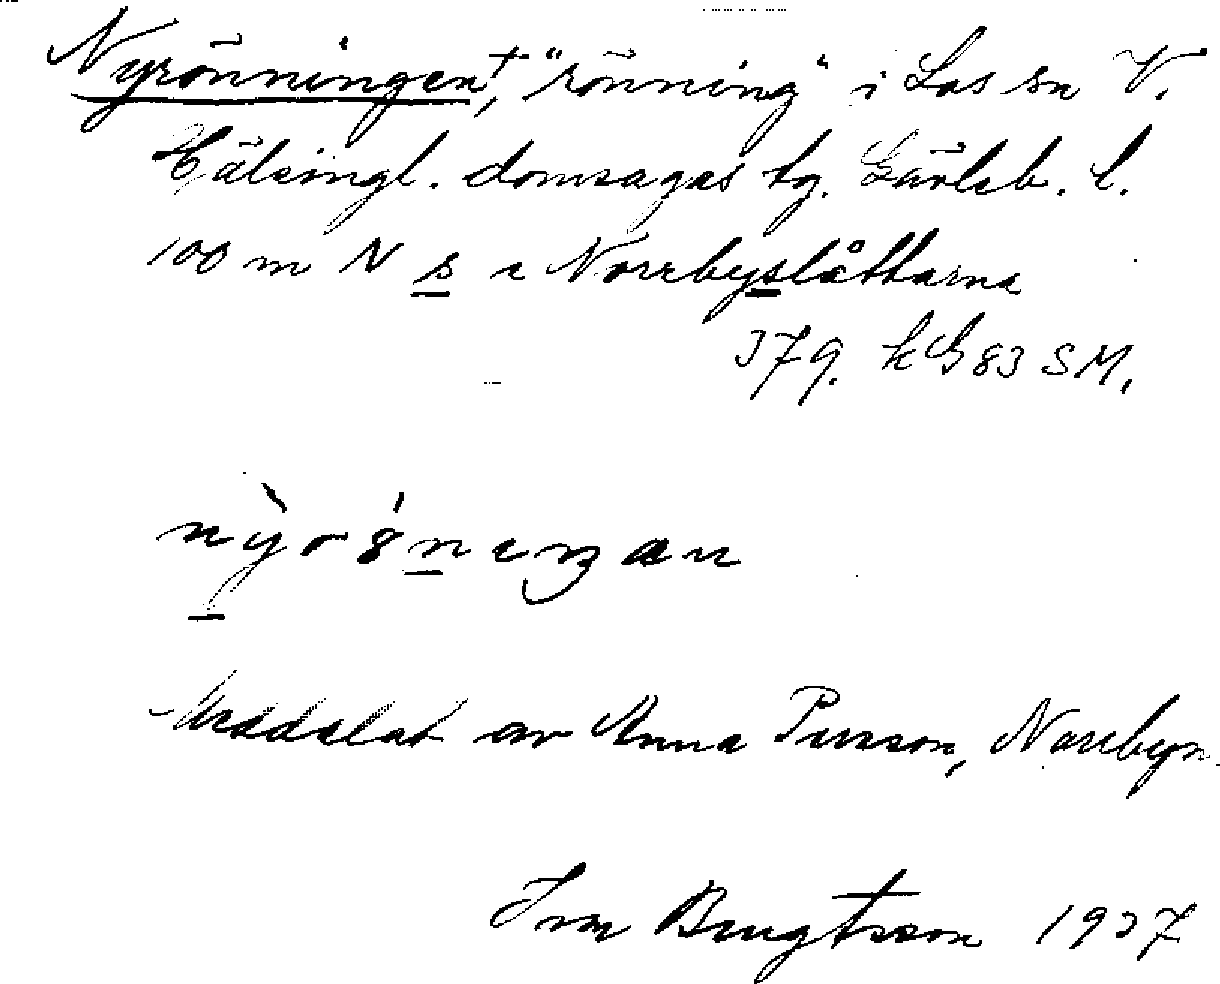 Nyrönningen†, "rönning" i Los sn V.
Hälsingl. domsagas tg. Gävleb. l.
100 m N s i Norrbyslåttarna
379. k G 83 SM.
Meddelat av Anna Persson, Norrbyn.
Ivar Bengtsson 1937